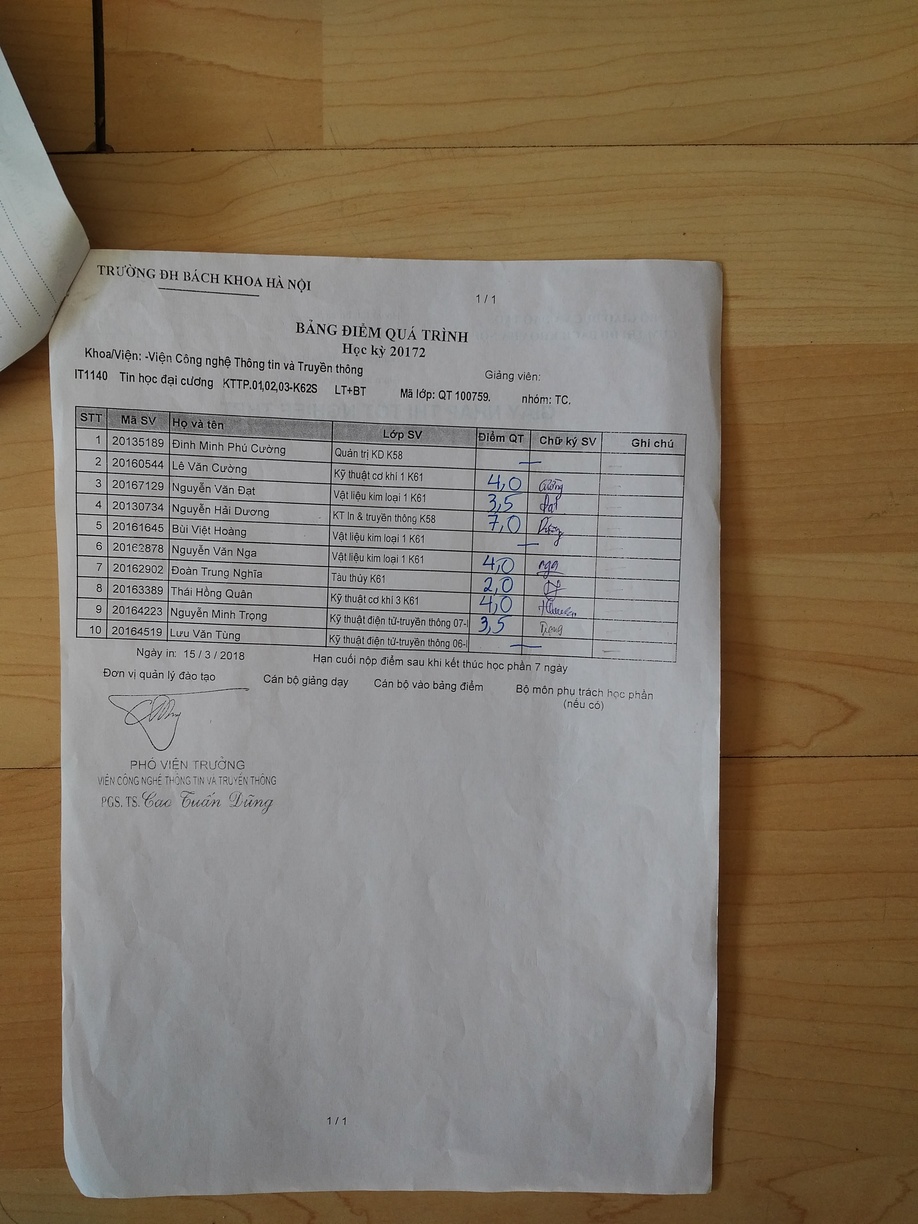 TRƯỜNG ĐH BÁCH KHOA HÀ NỘI
1 / 1
BẢNG ĐIỂM QUÁ TRÌNH
Học kỳ 20172
Khoa/Viện: -Viện Công nghệ Thông tin và Truyền thông Giảng viên:
IT1140 Tin học đại cương KTTP.01,02,03-K62S LT+BT Mã lớp: QT 100759. nhóm: TC.
STT Mã SV Họ và tên Lớp SV Điểm QT Chữ ký SV Ghi chú
1 20135189 Đinh Minh Phú Cường Quản trị KD K58 —
2 20160544 Lê Văn Cường Kỹ thuật cơ khí 1 K61 4,0 Cường
3 20167129 Nguyễn Văn Đạt Vật liệu kim loại 1 K61 3,5 Đạt
4 20130734 Nguyễn Hải Dương KT In & truyền thông K58 7,0
5 20161645 Bùi Việt Hoàng Vật liệu kim loại 1 K61 —
6 20162878 Nguyễn Văn Nga Vật liệu kim loại 1 K61 4,0 nga
7 20162902 Đoàn Trung Nghĩa Tàu thủy K61 2,0
8 20163389 Thái Hồng Quân Kỹ thuật cơ khí 3 K61 4,0
9 20164223 Nguyễn Minh Trọng Kỹ thuật điện tử-truyền thông 07-I 3,5
10 20164519 Lưu Văn Tùng Kỹ thuật điện tử-truyền thông 06-I —
Ngày in: 15 / 3 / 2018 Hạn cuối nộp điểm sau khi kết thúc học phần 7 ngày
Đơn vị quản lý đào tạo Cán bộ giảng dạy Cán bộ vào bảng điểm Bộ môn phụ trách học phần
(nếu có)
PHÓ VIỆN TRƯỞNG
VIỆN CÔNG NGHỆ THÔNG TIN VÀ TRUYỀN THÔNG
PGS. TS. Cao Tuấn Dũng
1 / 1